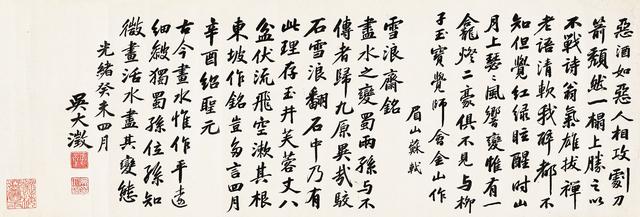 惡酒如惡人相攻劇刀
箭頹然一榻上勝之以
不戰詩翁氣雄拔禪
老語清軟我醉都不
知但覺紅綠眩醒時山
月上瑟瑟風響變惟有一
龕燈二豪俱不見与柳
子玉寶覺師會金山作
眉山蘇軾
雪浪齋銘
盡水之變蜀兩孫与不
傳者歸九原異哉駮
石雪浪翻石中乃有
此理存玉井芙蓉丈八
盆伏流飛空漱其根
東坡作銘豈多言四月
辛酉紹聖元
古今畫水惟作平遠
細皴獨蜀孫位孫知
微畫活水盡其變態
光緒癸未四月
吳大澂